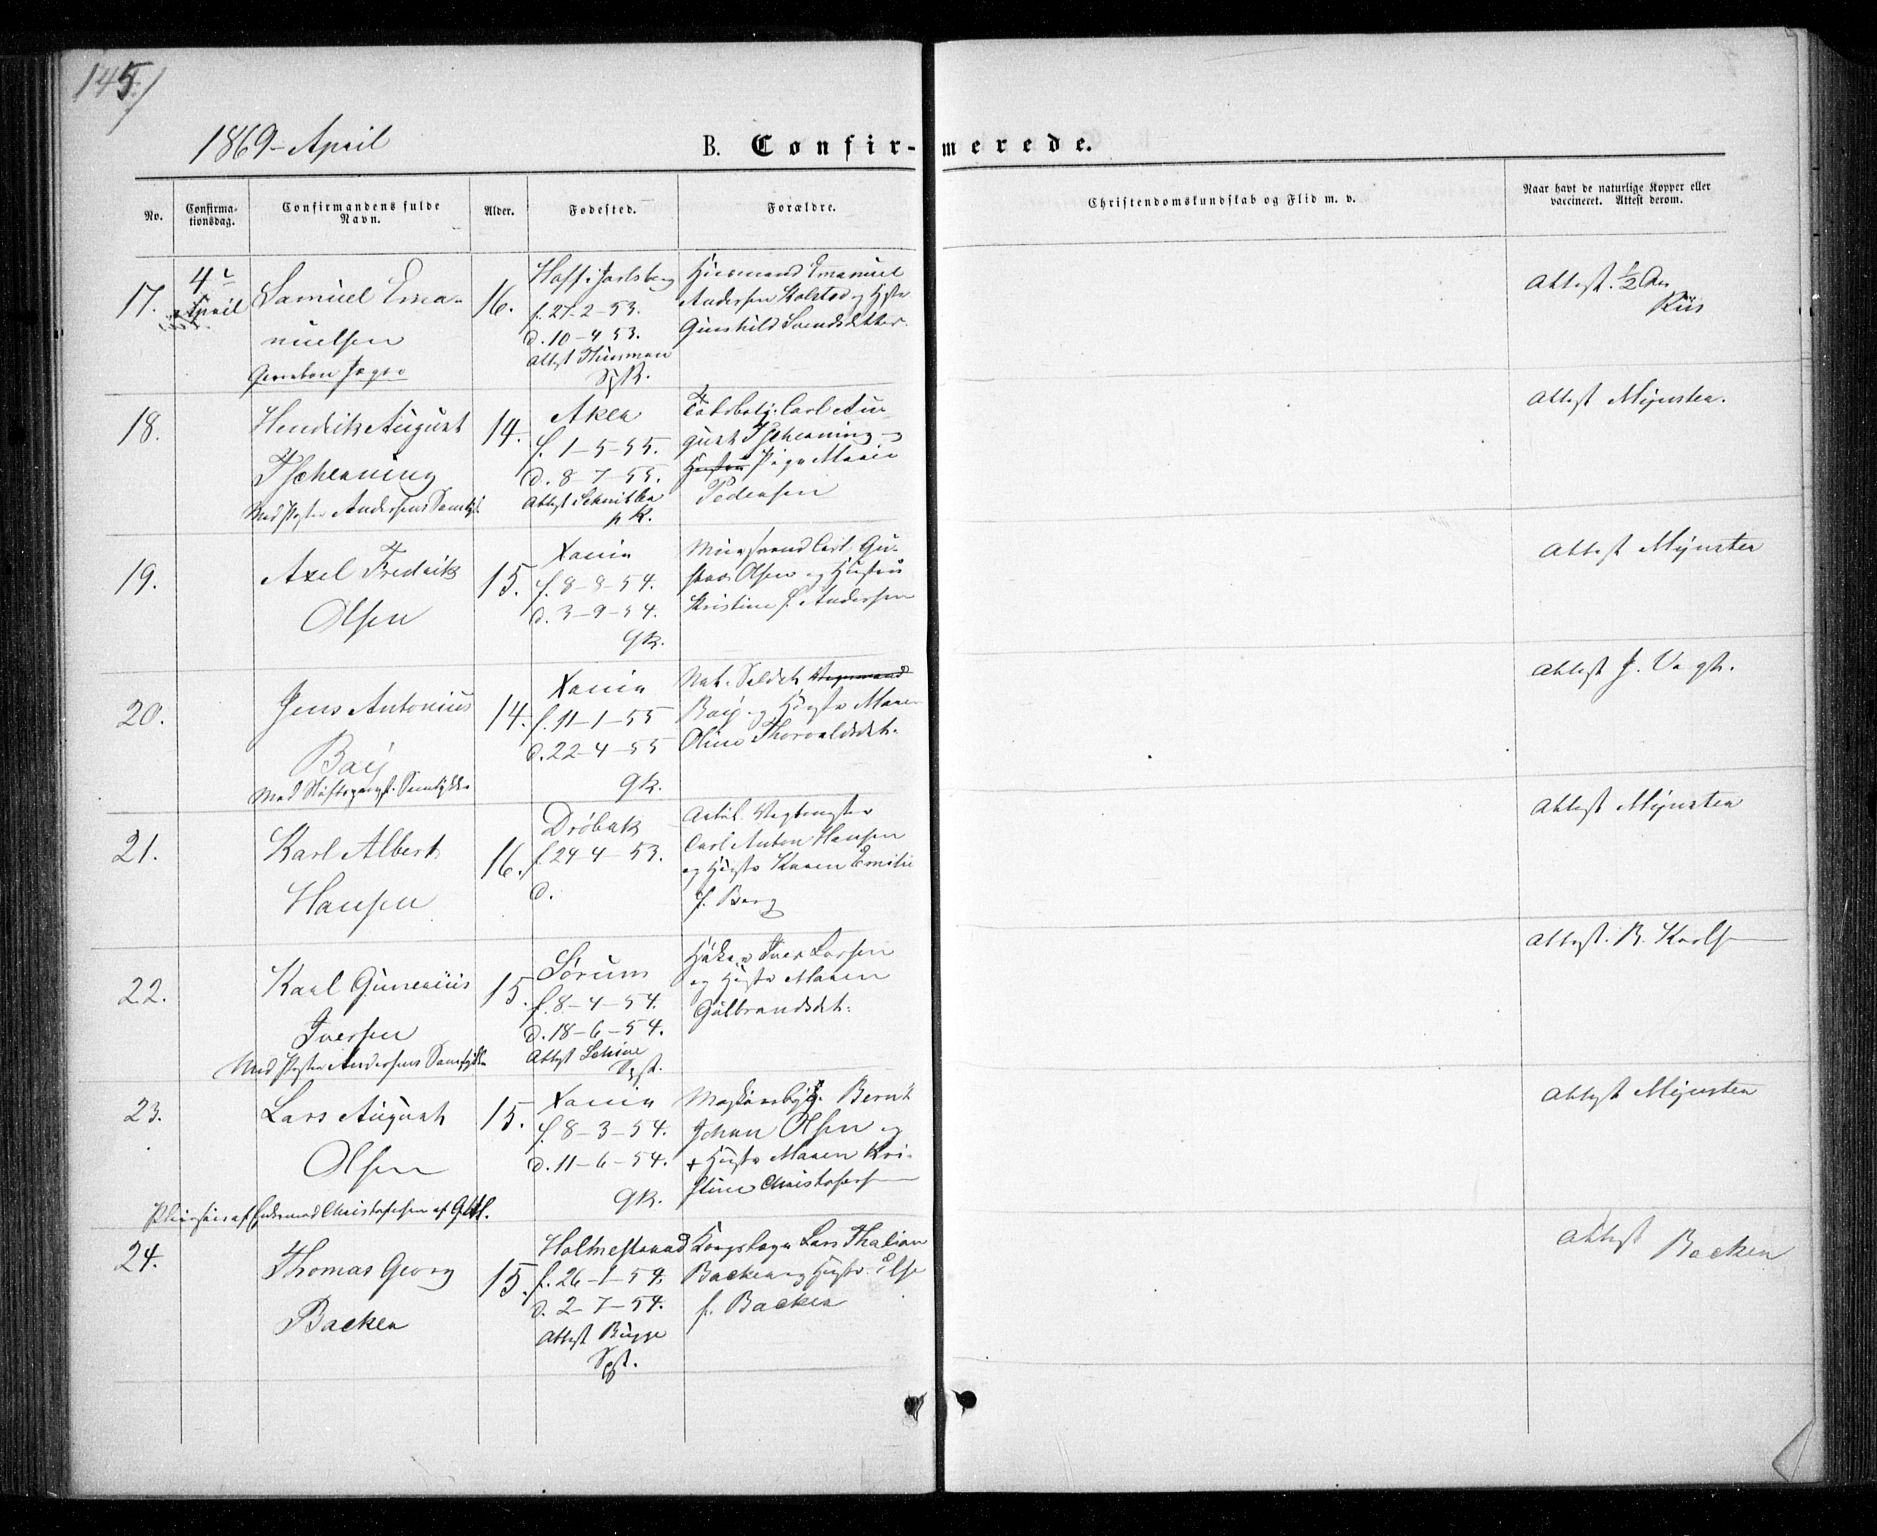 145
1869 - April
B. Confir-merede.
No.
Confirma-
tionsdag.
Confirmandens fulde
Navn.
Alder.
Fødested.
Forældre.
Christendomskundskab og Flid m. v.
Naar havt de naturlige Kopper eller
vaccineret. Attest derom.
17.
4
April
Samuel Ema-
nuelsen
16.
Hoff i Jarlsberg
f. 27-2-53.
d. 10-4 53.
Attest
Husmand Emanuel
Andersen Kolstad og Hstr
Gunhild Svendsdatter.
Attest.
18.
Hendrik August
Tscherning
Med Pastor Andersens Samtyk
14.
Aker
f. 1-5-55.
d. 8-7-55.
Attest
Carl Au-
gust Tscherning og
Hustru Pige Marie
Pedersen
Attest Mynster.
19.
Axel Fredrik
Olsen
15.
Xania
f. 8-8-54.
d. 3-9-54.
gK.
Carl Gu-
stav Olsen og Hustru
Kristine f. Andersen
Attest Mynster
20.
Jens Antonius
Bay
Med
14.
Xania
f. 11-1-55
d. 22-4-55
gK.
Nat. Soldat
Bay og Hustr Maren
Oline Thorvaldsdt.
Attest J. Vogt.
21.
Karl Albert
Hansen
16.
Drøbak
f. 24 4-53.
d.
Carl Anton Hansen
og Hustr Karen Emilie
f. Berg
Attest Mynster
22.
Karl Gunerius
Iversen
Med Pastor Andersens Samtykke
15.
Sørum
f. 8-4-54.
d. 18-6-54.
Attest
Iver Larsen
og Hustr Maren
Gulbrandsdt.
Attest. B. Karlsen
23.
Lars August
Olsen
15.
Xania
f. 8-3-54.
d. 11-6-54.
gK.
Bernt
Johan Olsen og
+ Hustr Maren Kri-
stine Christophersen
Attest Mynster
24.
Thomas Georg
Backer
15.
Holmestrand
f. 26-1-54.
d. 2-7-54.
Attest Bugge
Spst.
Lars Thalian
Backer og Hustr. Else
f. Backer
Attest Backer